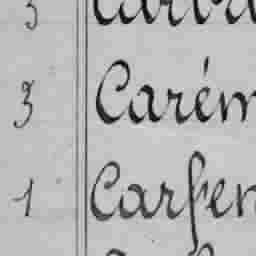 3 Carém
1 Carpen